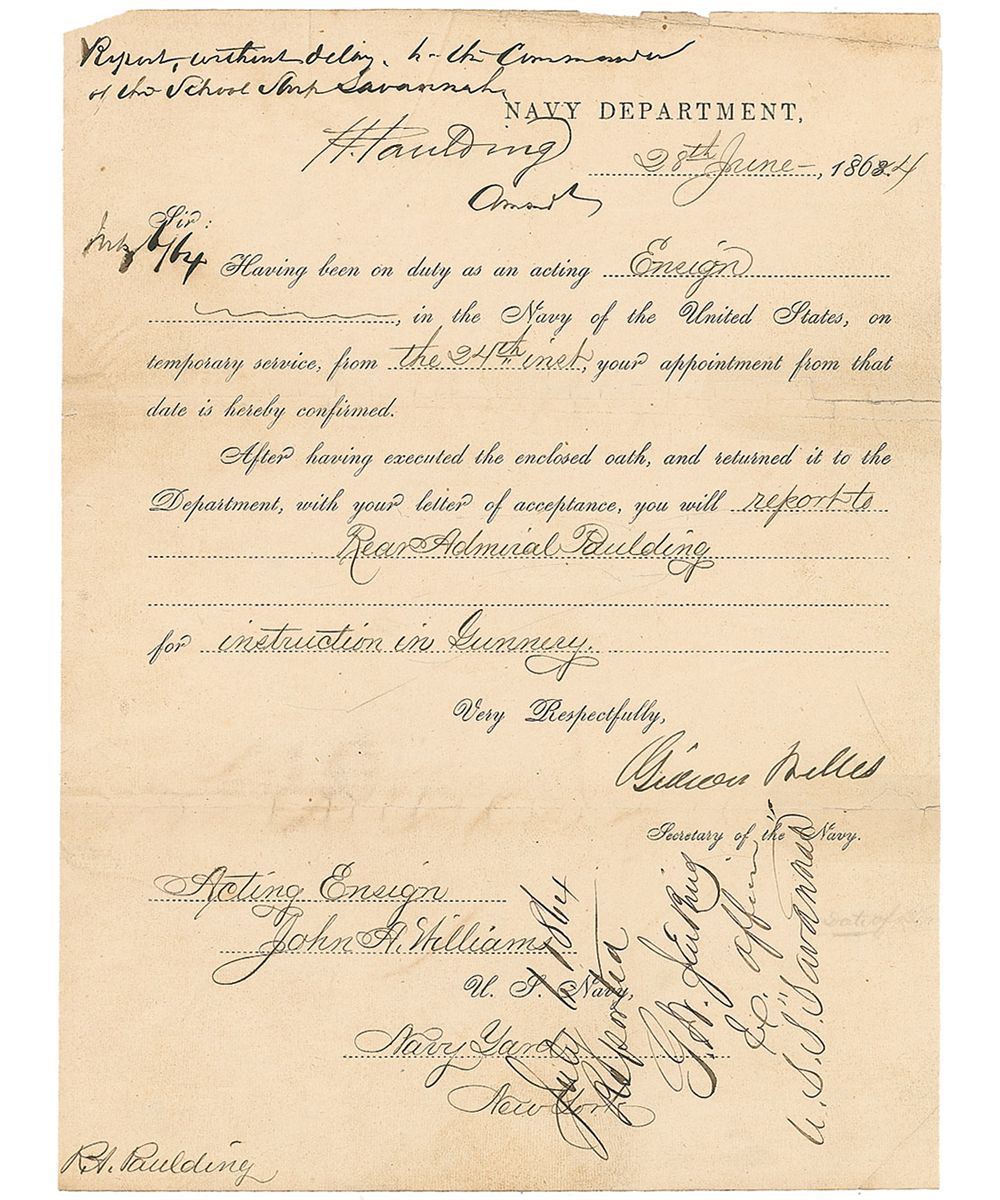 Report, without delay, to the Commander
of the School Ship Savannah,
NAVY DEPARTMENT,
H. Paulding
28th June—, 1864
Comdt
Sir:
July 6/64
Having been on duty as an acting Ensign
, in the Navy of the United States, on
temporary service, from the 24th inst, your appointment from that
date is hereby confirmed.
After having executed the enclosed oath, and returned it to the
Department, with your letter of acceptance, you will report to
Rear Admiral Paulding
for instruction in Gunnery.
Very Respectfully,
Gideon Welles
Secretary of the Navy.
Acting Ensign
John A. Williams
U. S. Navy,
Navy Yard
New York
July 6 1864
Reported
Ex. officer
U.S.S. "Savannah"
R.A. Paulding